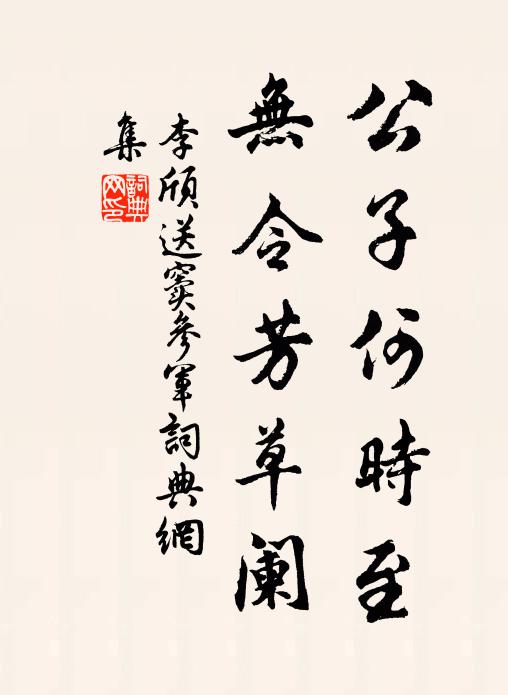 公子何時至
無令芳草阑
李頎送竇參軍詞典網
集
詞典网印